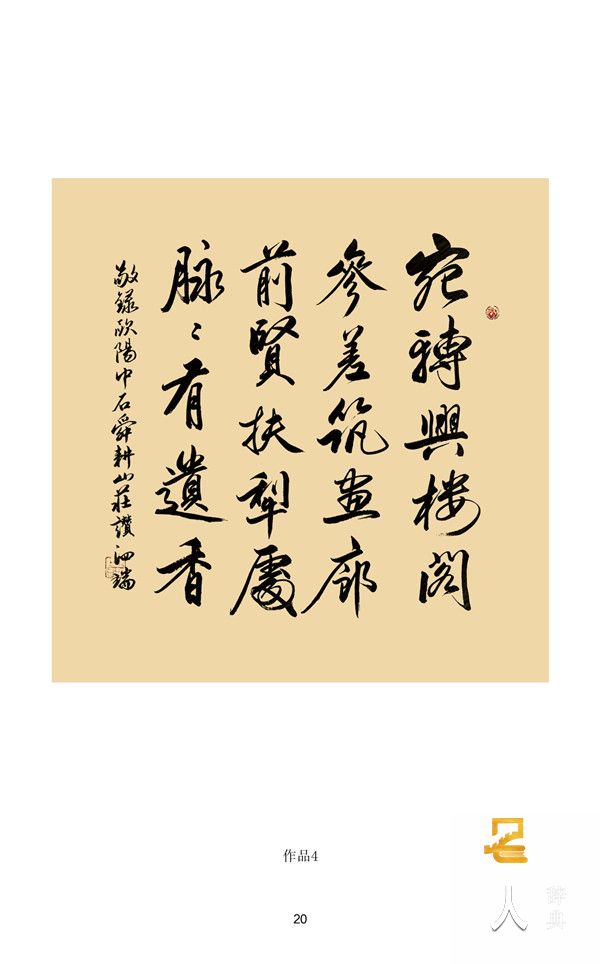 宛轉興樓閣
參差筑畫廊
前賢扶犁處
脉〻有遺香
敬錄歐陽中石舜耕山莊讚 泗端
作品4
20
名人
辞典